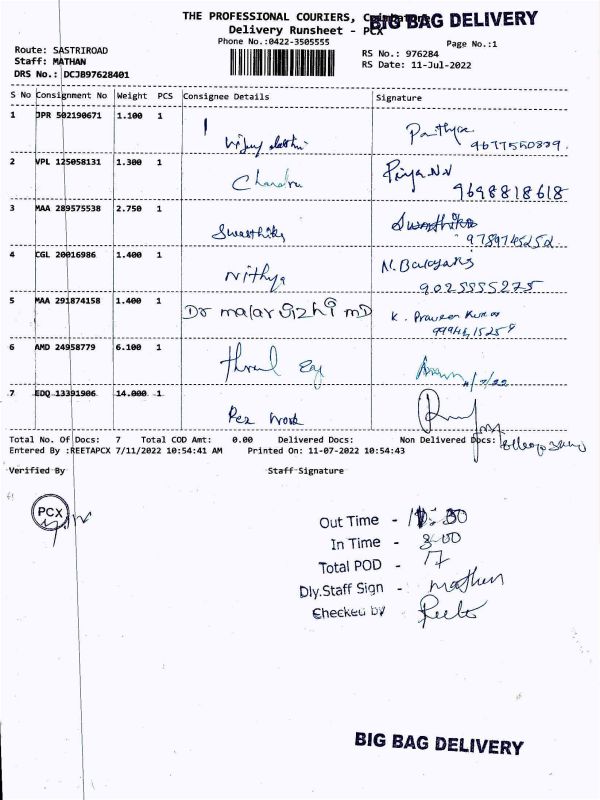 THE PROFESSIONAL COURIERS,
BIG BAG DELIVERY
Delivery Runsheet - PCX
Phone No.:0422-3505555
Page No.:1
Route: SASTRIROAD
Staff: MATHAN
DRS No.: DCJB97628401
RS No.: 976284
RS Date: 11-Jul-2022
S No Consignment No Weight PCS Consignee Details Signature
1 JPR 502190671 1.100 1
2 VPL 125058131 1.300 1 Chandra Priya.N.V
9698818618
3 MAA 289575538 2.750 1 Swasthika Swasthika
9789745252
4 CGL 20016986 1.400 1 Nithya N. Balayars
9025555275
5 MAA 291874158 1.400 1 Dr malar vizhi MD K. Praveen Kumar
6 AMD 24958779 6.100 1
11/7/22
7 EDQ 13391906 14.000 1 Pez Work
Total No. Of Docs: 7 Total COD Amt: 0.00 Delivered Docs: Non Delivered Docs:
Entered By :REETAPCX 7/11/2022 10:54:41 AM Printed On: 11-07-2022 10:54:43
Verified By Staff-Signature
PCX
Out Time -
In Time - 8-00
Total POD - 17
Dly.Staff Sign - mathan
Checked by Reeta
BIG BAG DELIVERY